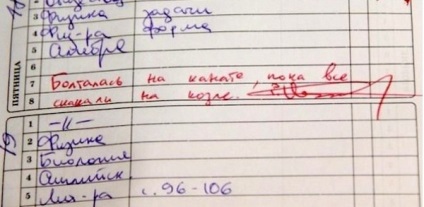 3 Физика задачи
4 Физ-ра форма
5 Алгебра
6
ПЯТНИЦА
7 Болталась на канате, пока все
8 скакали на козле.
19
1 -||-
2 Физика
3 Биология
4 Английск.
5 Лит-ра с. 96-106